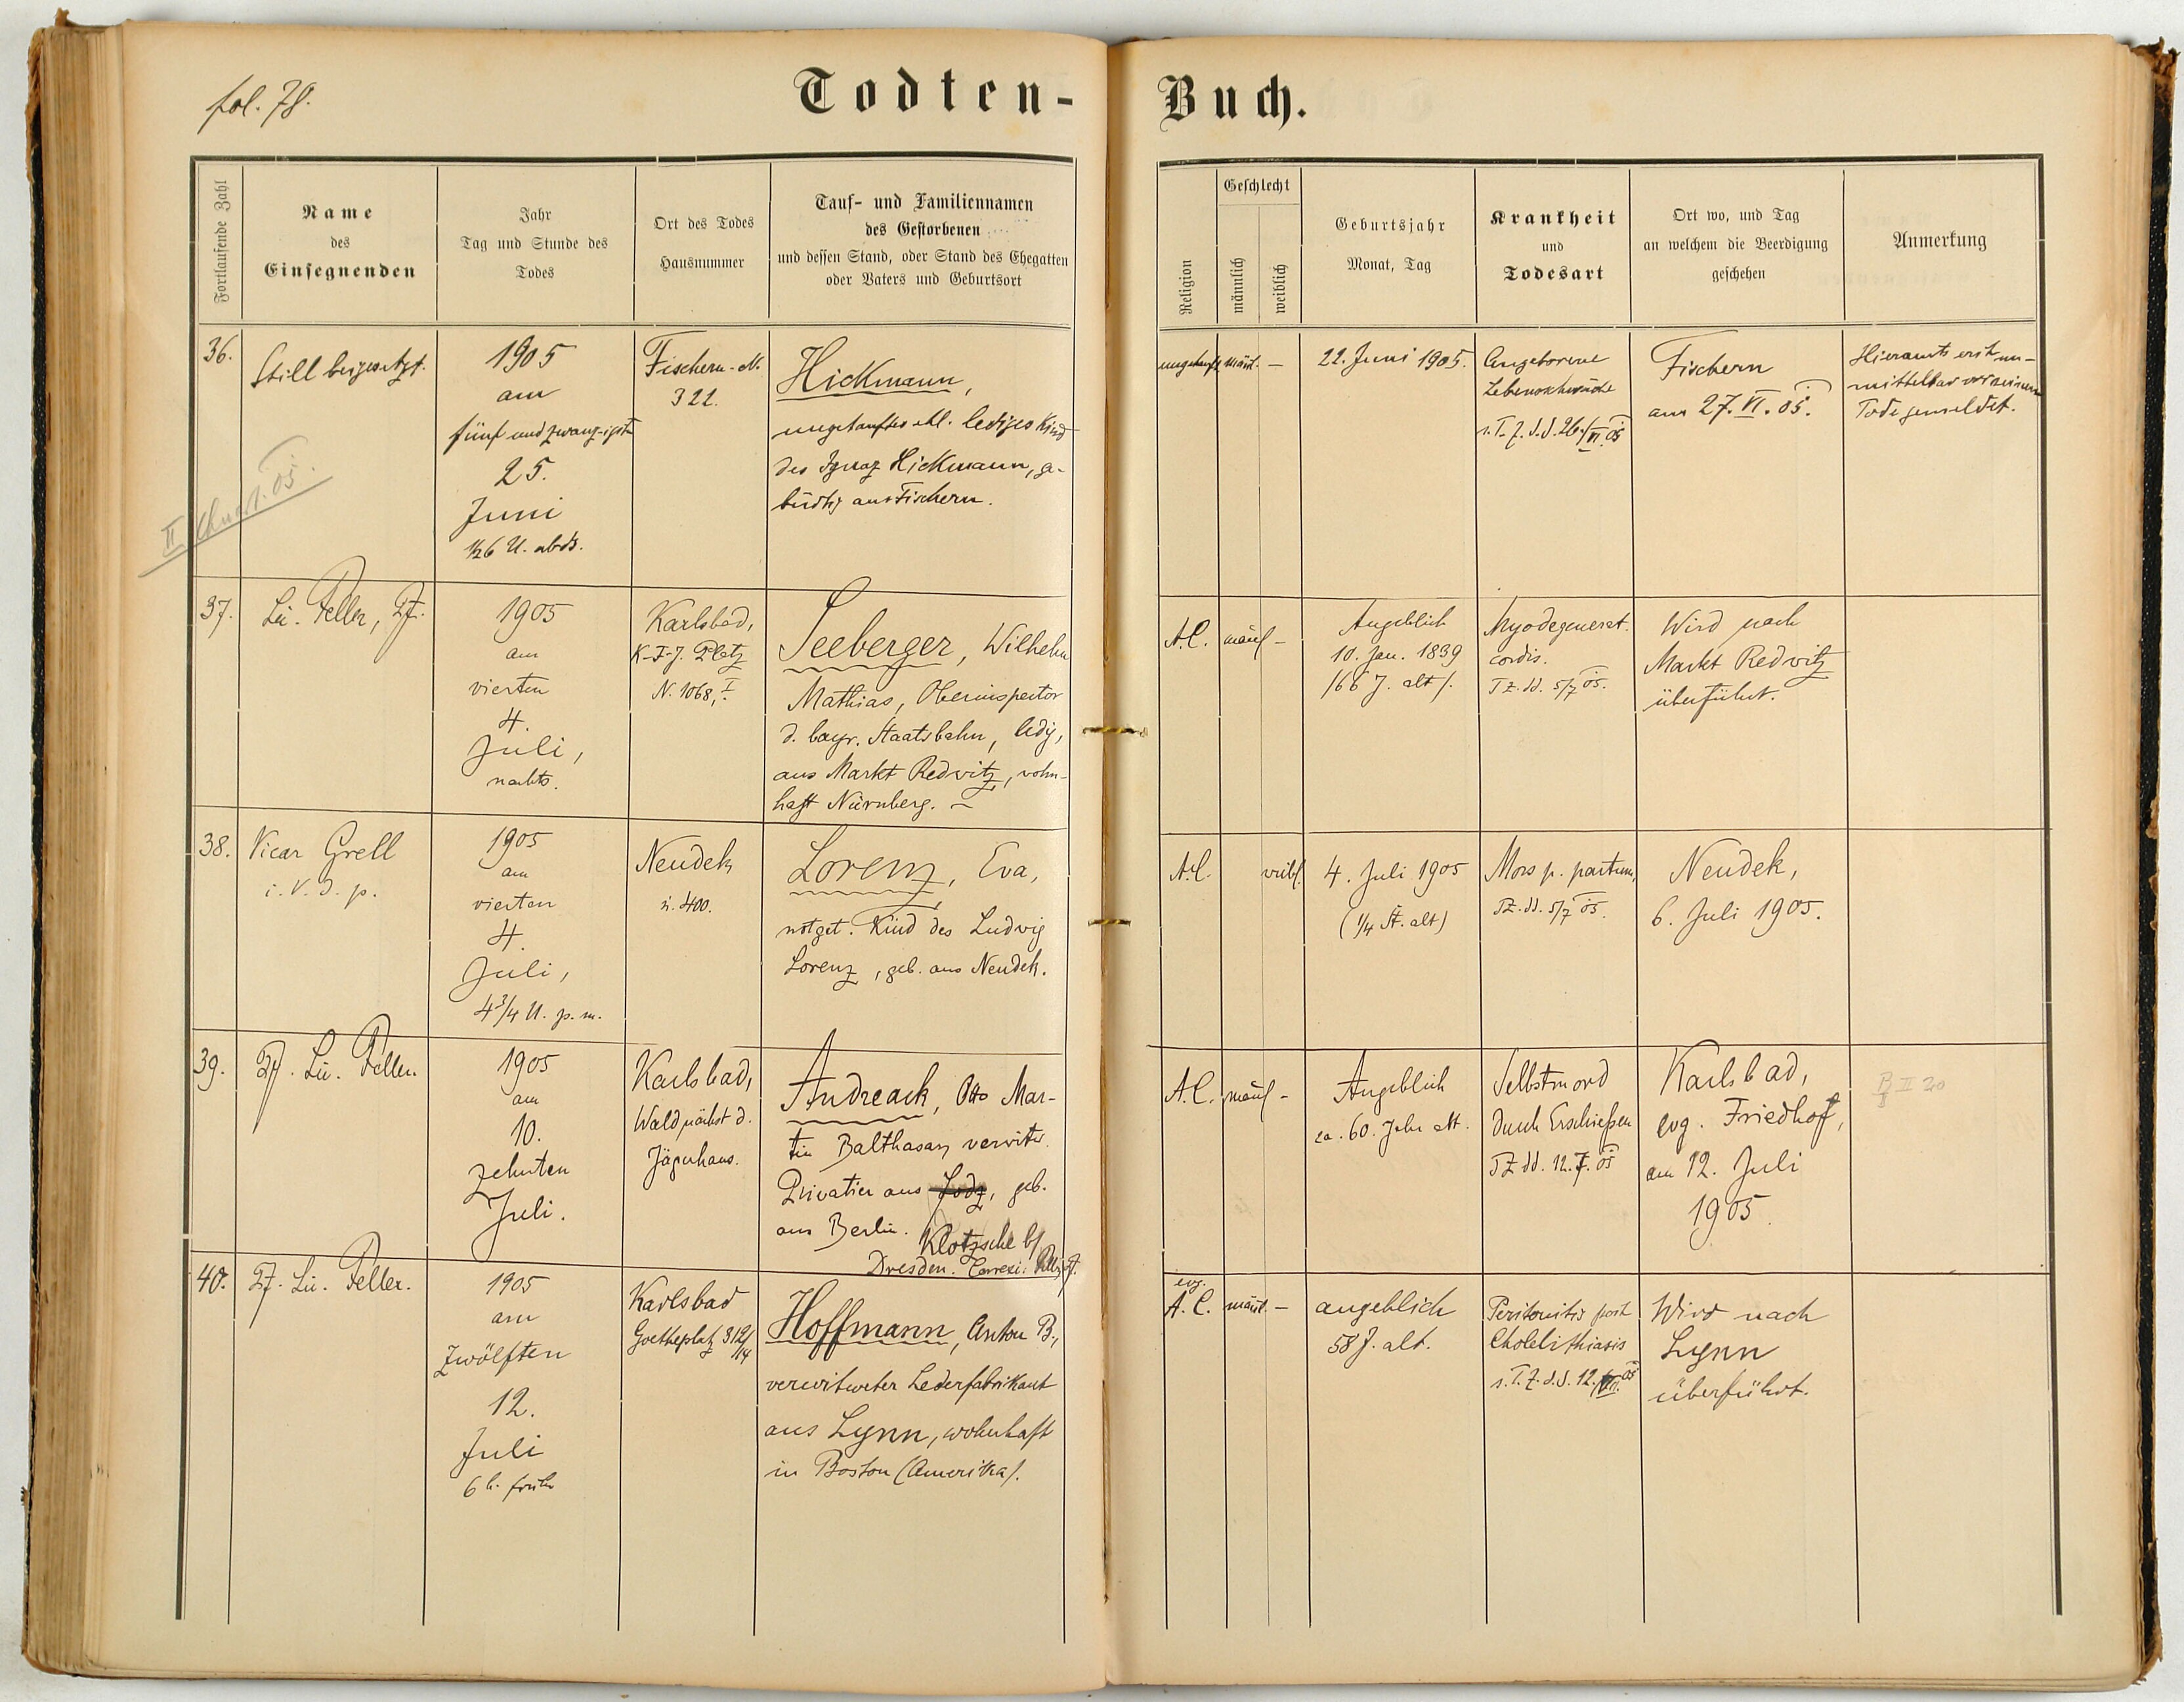 fol. 78.
Todten-Buch.
Fortlaufende Zahl
Name
des
Einsegnenden
Jahr
Tag und Stunde des
Todes
Ort des Todes
Hausnummer
Tauf- und Familiennamen
des Gestorbenen
und dessen Stand, oder Stand des Ehegatten
oder Vaters und Geburtsort
Religion
Geschlecht
männlich
weiblich
Geburtsjahr
Monat, Tag
Krankheit
und
Todesart
Ort wo, und Tag
an welchem die Beerdigung
geschehen
Anmerkung
36.
Still beigesetzt.
1905
am
fünf und zwanzigsten
25.
Juni
½6 U. abds.
Fischern-N.
322.
Hickmann,
ungetauftes ehl. lediges Kind
des Ignaz Hickmann, ge-
bürtig aus Fischern.
ungetauft
mänl.
—
22. Juni 1905.
Angeborene
Lebensschwäche
s. T. Z. d. d. 26./VI. 05
Fischern
am 27. VI. 05.
Hieramts erst un-
mittelbar vor seinem
Tode gemeldet.
II. 05.
37.
Lic. Feller, Pf.
1905
am
vierten
4.
Juli,
nachts.
Karlsbad,
K-F-J. Platz
N. 1068, I.
Seeberger, Wilhelm
Mathias, Oberinspector
d. bayr. Staatsbahn, ledig,
aus Markt Redwitz, wohn-
haft Nürnberg. —
A.C.
mänl
-
Angeblich
10. Jan. 1839
/66 J. alt/.
Myodegenerat.
cordis.
TZ. dd. 5/7 05.
Wird nach
Markt Redwitz
überführt.
38.
Vicar Grell
i. V. d. p.
1905
am
vierten
4.
Juli,
4¾ U. p. m.
Neudek
N. 400.
Lorenz, Eva,
notget. Kind des Ludwig
Lorenz, geb. aus Neudek.
A.C.
weibl.
4. Juli 1905
(¼ St. alt)
Mors p. partum,
TZ. dd. 5/7 05.
Neudek,
6. Juli 1905.
39.
Pf. Lic. Feller.
1905
am
10.
zehnten
Juli.
Karlsbad,
Wald nächst d.
Jägerhaus.
Andreack, Otto Mar-
tin Balthasar, verwitw.
Privatier aus Lodz, geb.
aus Berlin. Klotzsche b/
Dresden.
A.C.
mänl
-
Angeblich
ca. 60. Jahr alt.
Selbstmord
durch Erschießen
TZ dd. 12. 7. 05
Karlsbad,
evg. Friedhof,
am 12. Juli
1905.
B II 20
40.
Pf. Lic. Feller.
1905
am
Zwölften
12.
Juli
6 h. früh
Karlsbad
Goetheplatz 312/14
Hoffmann, Anton B.,
verwitweter Lederfabrikant
aus Lynn, wohnhaft
in Boston (Amerika).
evg.
A.C.
mänl.
—
angeblich
58 J. alt.
Peritonitis post
Cholelithiasis
s. T. Z. d. d. 12./VII. 05
Wird nach
Lynn
überführt.